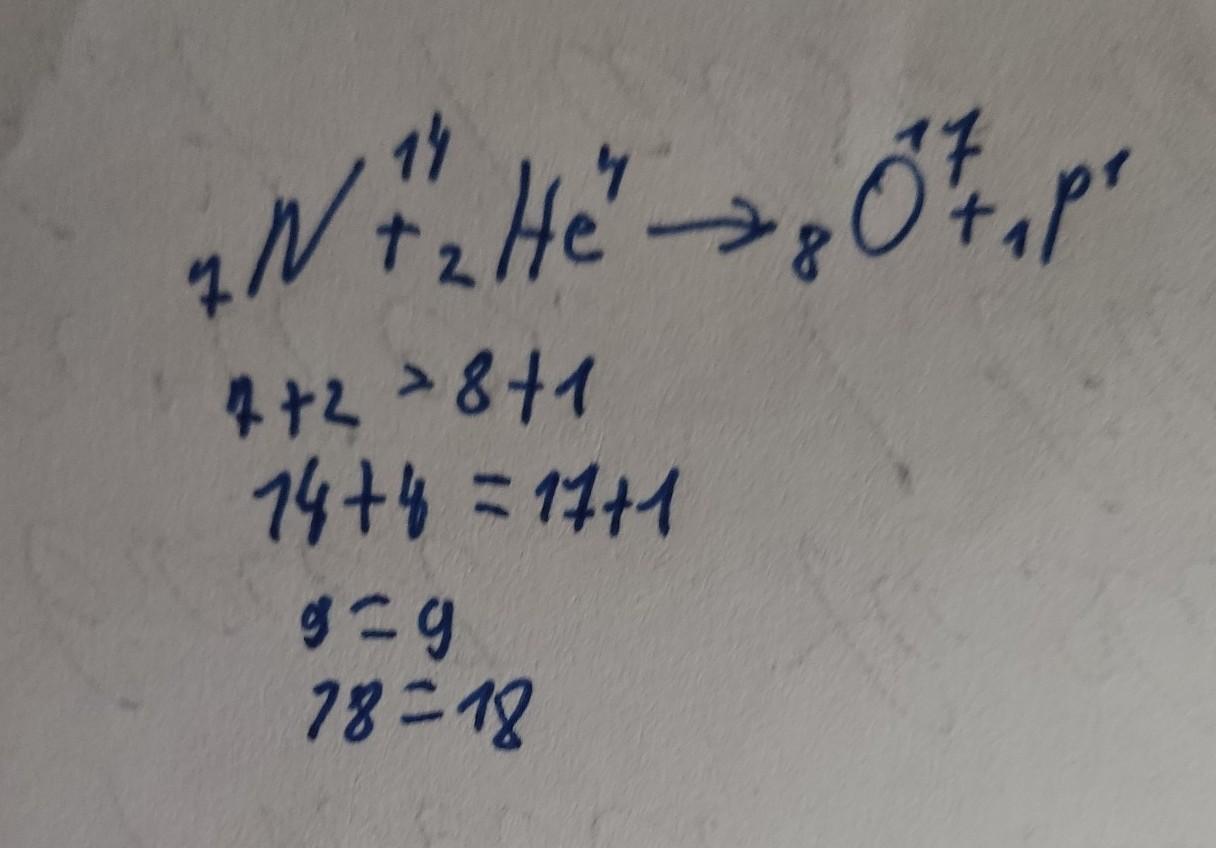 ₇N¹⁴ + ₂He⁴ → ₈O¹⁷ + ₁p¹
7+2 > 8+1
14+4 = 17+1
9=9
18=18